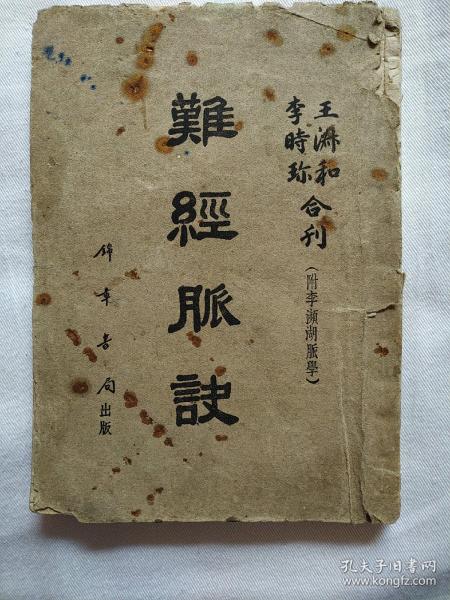 王㳽和
李時珍
合刊
(附李瀕湖脈學)
難經脈訣
錦章書局出版
孔夫子旧书网
www.kongfz.com